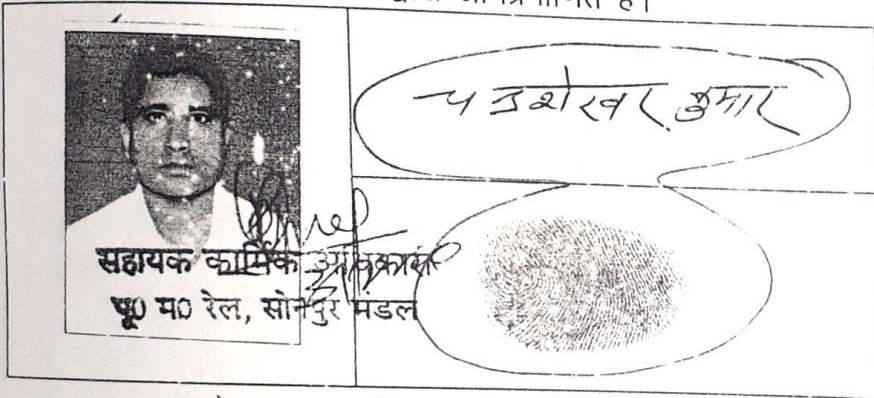 चन्द्रशेखर कुमार
सहायक कार्मिक अधिकारी
पू0 म0 रेल, सोनपुर मंडल